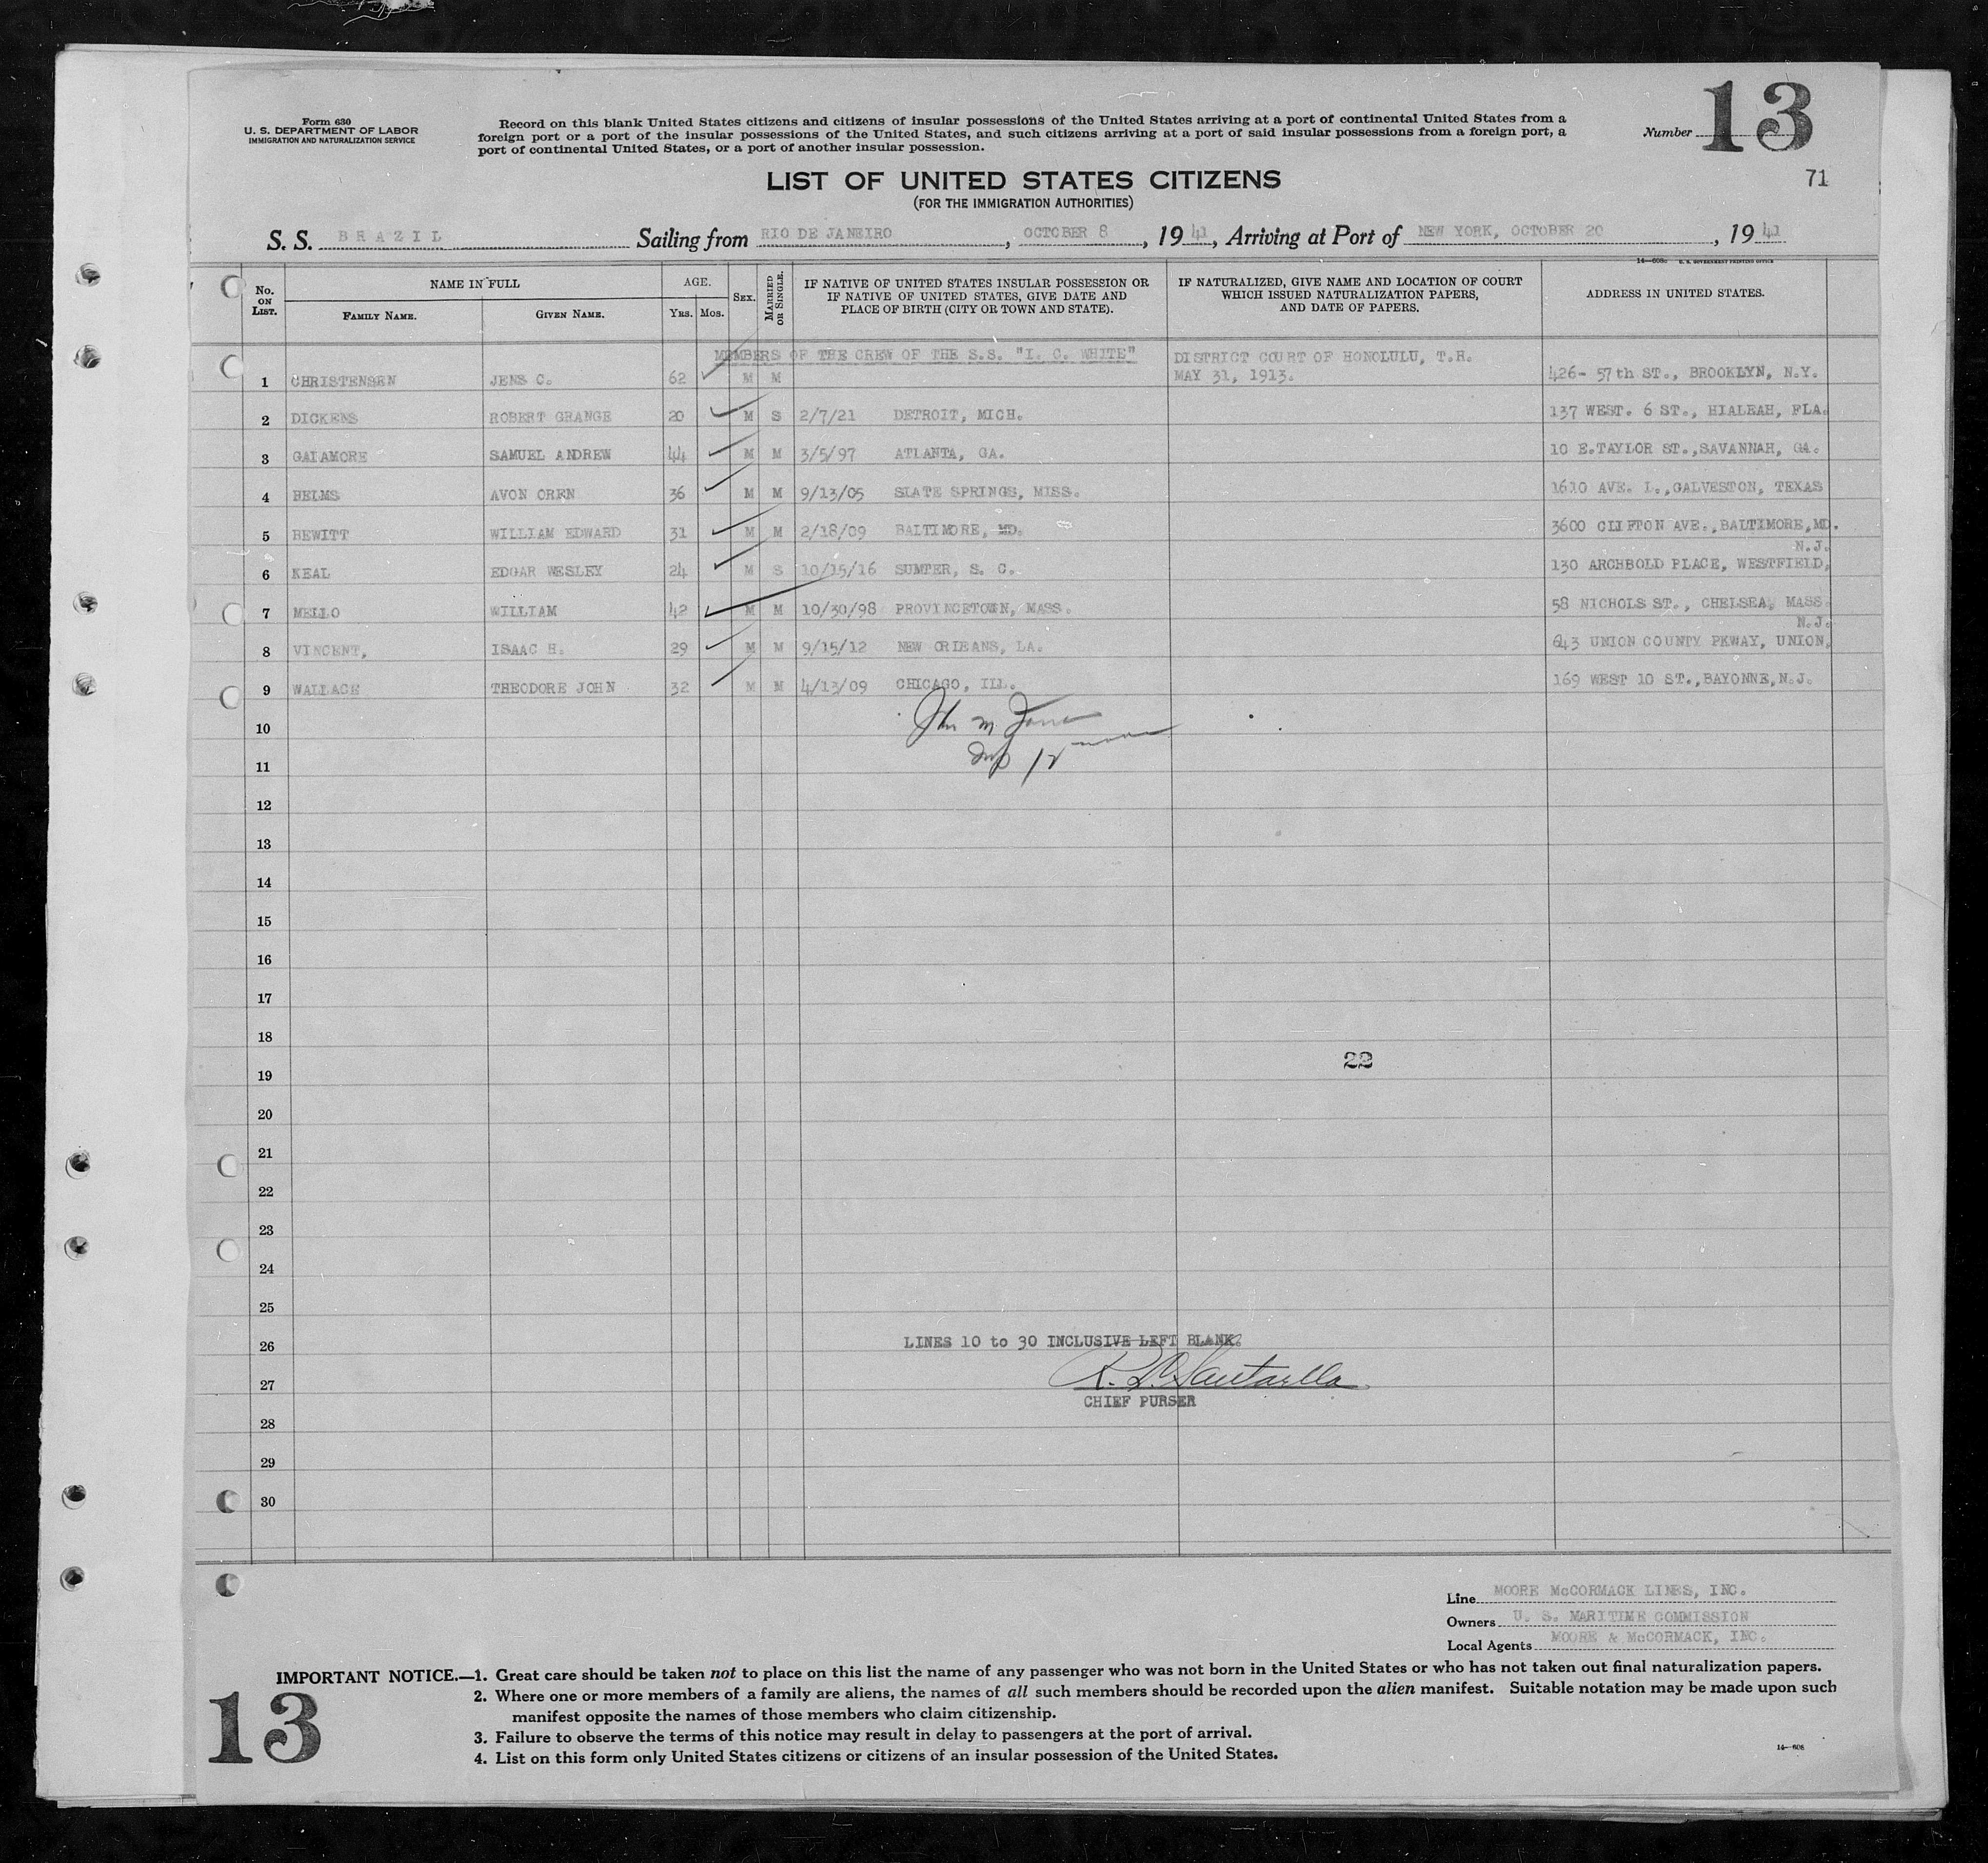 Form 630
U. S. DEPARTMENT OF LABOR
IMMIGRATION AND NATURALIZATION SERVICE
Record on this blank United States citizens and citizens of insular possessions of the United States arriving at a port of continental United States from a
foreign port or a port of the insular possessions of the United States, and such citizens arriving at a port of said insular possessions from a foreign port, a
port of continental United States, or a port of another insular possession.
Number 13
71
LIST OF UNITED STATES CITIZENS
(FOR THE IMMIGRATION AUTHORITIES)
S. S. BRAZIL Sailing from RIO DE JANEIRO, OCTOBER 8, 1941, Arriving at Port of NEW YORK, OCTOBER 20, 1941
14—608c U. S. GOVERNMENT PRINTING OFFICE
No. ON LIST. NAME IN FULL FAMILY NAME. GIVEN NAME. AGE. YRS. MOS. SEX. MARRIED OR SINGLE. IF NATIVE OF UNITED STATES INSULAR POSSESSION OR IF NATIVE OF UNITED STATES, GIVE DATE AND PLACE OF BIRTH (CITY OR TOWN AND STATE). IF NATURALIZED, GIVE NAME AND LOCATION OF COURT WHICH ISSUED NATURALIZATION PAPERS, AND DATE OF PAPERS. ADDRESS IN UNITED STATES.
MEMBERS OF THE CREW OF THE S.S. "I. C. WHITE" DISTRICT COURT OF HONOLULU, T.H.
1 CHRISTENSEN JENS C. 62 M M MAY 31, 1913. 426- 57th ST., BROOKLYN, N.Y.
2 DICKENS ROBERT GRANGE 20 M S 2/7/21 DETROIT, MICH. 137 WEST. 6 ST., HIALEAH, FLA.
3 GALAMORE SAMUEL ANDREW 44 M M 3/5/97 ATLANTA, GA. 10 E.TAYLOR ST.,SAVANNAH, GA.
4 HELMS AVON OREN 36 M M 9/13/05 SLATE SPRINGS, MISS. 1610 AVE. L.,GALVESTON, TEXAS
5 HEWITT WILLIAM EDWARD 31 M M 2/18/09 BALTIMORE, MD. 3600 CLIFTON AVE.,BALTIMORE,MD.
N.J.
6 KEAL EDGAR WESLEY 24 M S 10/15/16 SUMTER, S. C. 130 ARCHBOLD PLACE, WESTFIELD,
7 MELLO WILLIAM 42 M M 10/30/98 PROVINCETOWN, MASS. 58 NICHOLS ST., CHELSEA, MASS.
N.J.
8 VINCENT, ISAAC H. 29 M M 9/15/12 NEW ORLEANS, LA. 643 UNION COUNTY PKWAY, UNION,
9 WALLACE THEODORE JOHN 32 M M 4/13/09 CHICAGO, ILL. 169 WEST 10 ST.,BAYONNE,N.J.
10
11
12
13
14
15
16
17
18
22
19
20
21
22
23
24
25
26 LINES 10 to 30 INCLUSIVE LEFT BLANK.
27
CHIEF PURSER
28
29
30
Line MOORE McCORMACK LINES, INC.
Owners U. S. MARITIME COMMISSION
Local Agents MOORE & McCORMACK, INC.
IMPORTANT NOTICE.—1. Great care should be taken not to place on this list the name of any passenger who was not born in the United States or who has not taken out final naturalization papers.
2. Where one or more members of a family are aliens, the names of all such members should be recorded upon the alien manifest. Suitable notation may be made upon such
manifest opposite the names of those members who claim citizenship.
3. Failure to observe the terms of this notice may result in delay to passengers at the port of arrival.
4. List on this form only United States citizens or citizens of an insular possession of the United States.
13
14—608